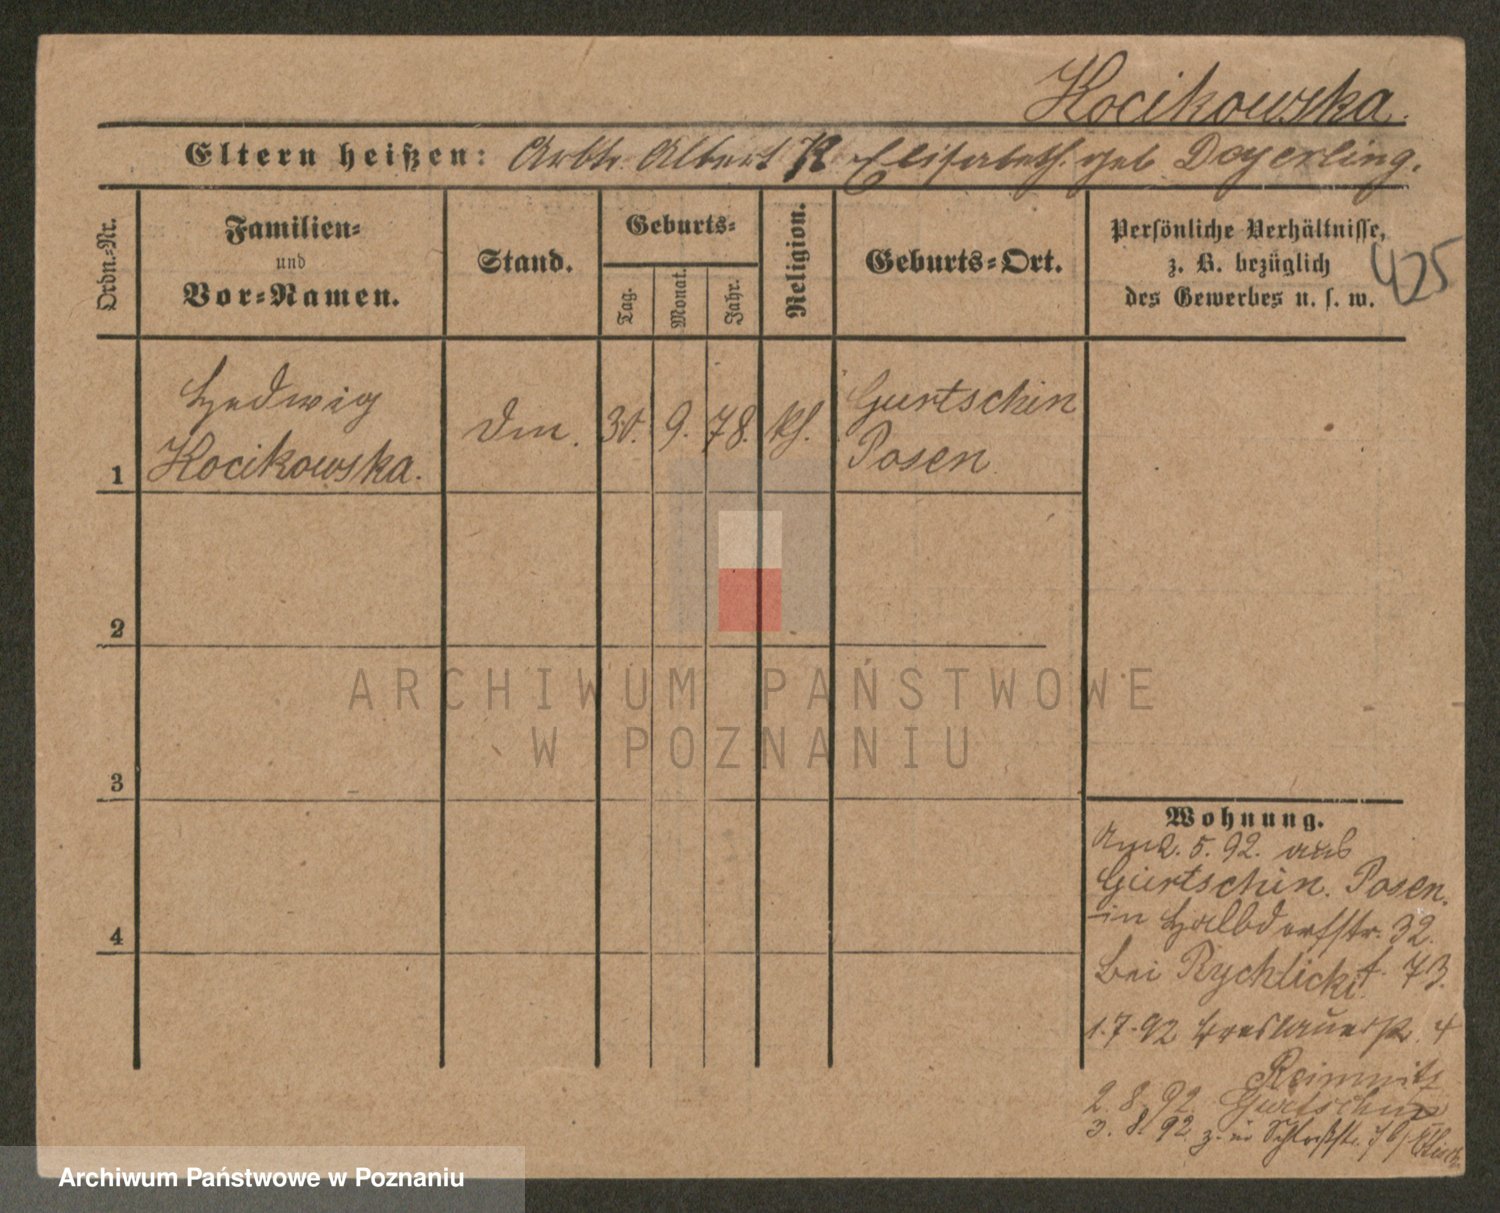 Kocikowska.
Eltern heißen: Arbtr. Albert K Elisabeth. geb. Doyerling.
Ordn.-Nr.
Familien-
und
Vor-Namen.
Stand.
Geburts-
Tag.
Monat.
Jahr.
Religion.
Geburts-Ort.
Persönliche Verhältnisse,
z. B. bezüglich
des Gewerbes u. s. w.
425
Hedwig
Kocikowska.
1
Dm.
30.
9.
78.
kh.
Gurtschin
Posen
2
3
4
ARCHIWUM PAŃSTWOWE
W POZNANIU
Wohnung.
2. 5. 92. aus
Gurtschin. Posen.
in Halbdorfstr. 32.
bei Rychlicki f. 73.
1.7.92 Breslauerstr. 4
Reimnitz
2. 8. 92 Gurtschin
3. 8. 92. z. in Schloßstr.
Archiwum Państwowe w Poznaniu